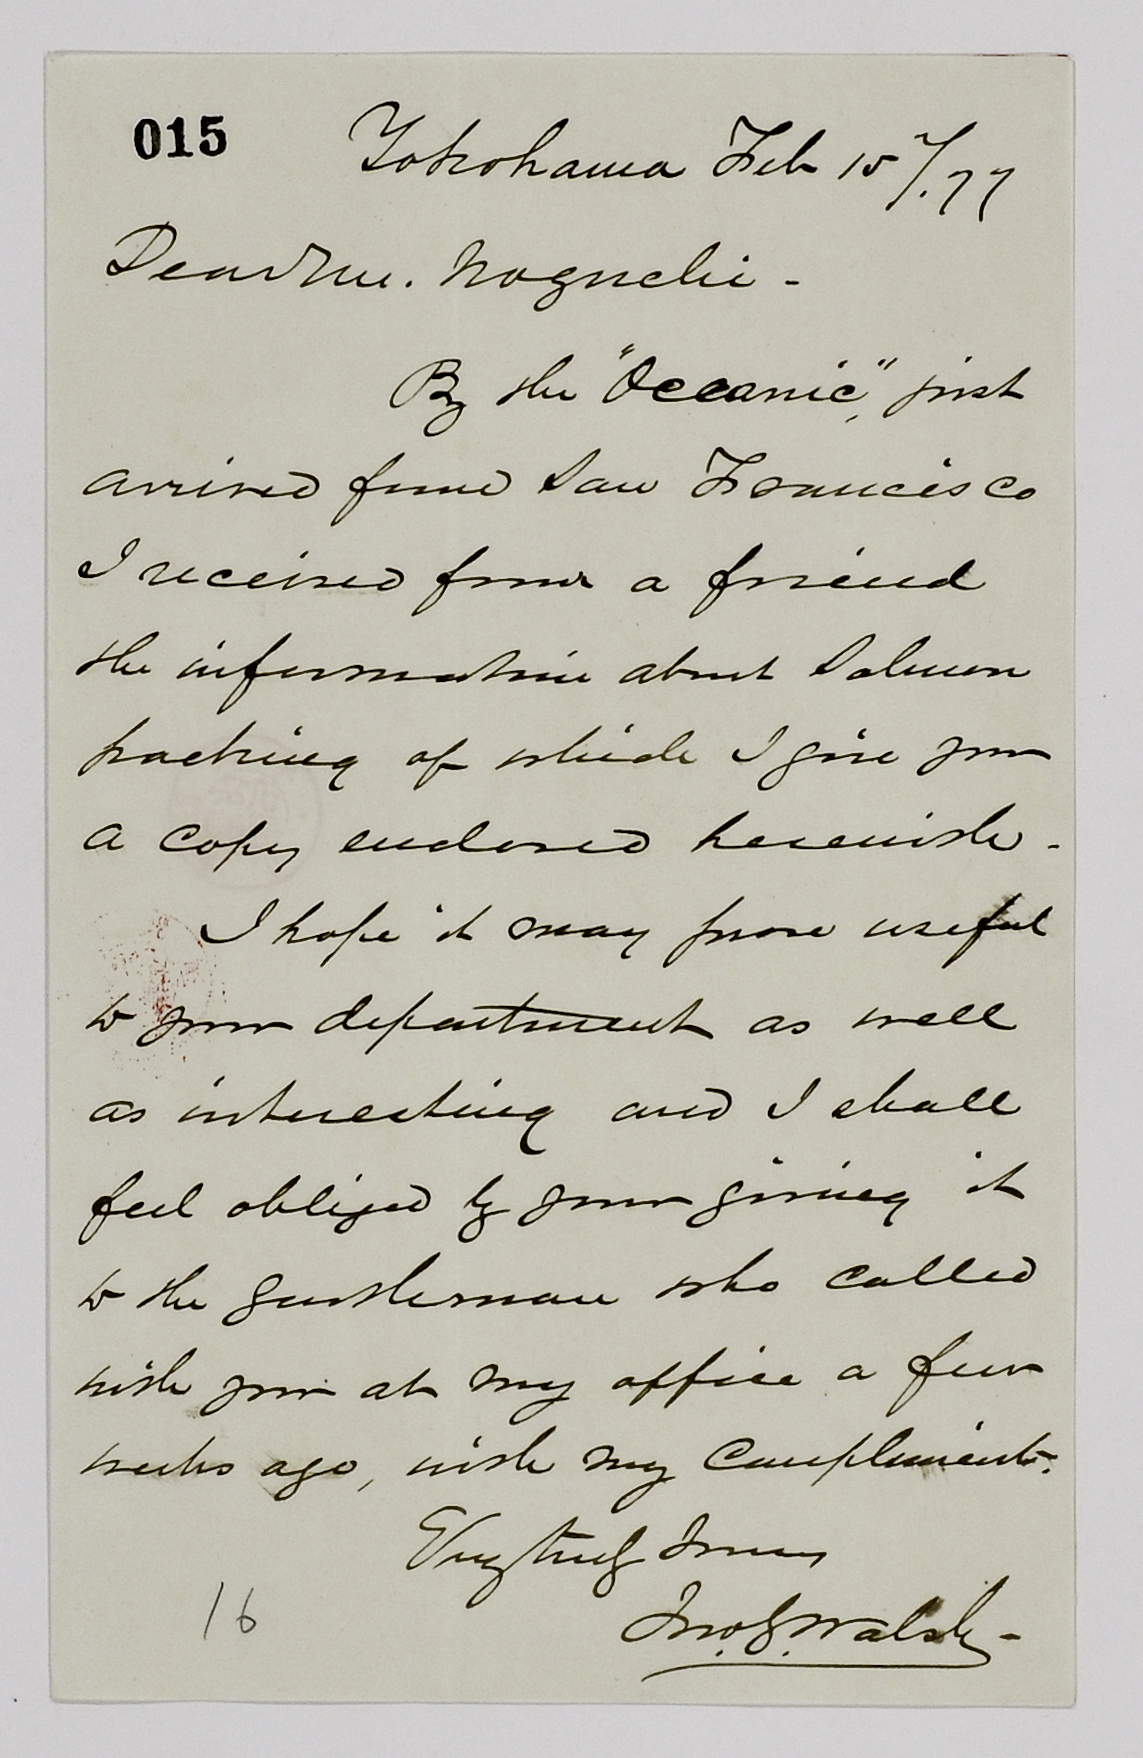 015
Yokohama Feb 15/.77
Dear Mr. Noguchi -
By the "Oceanic", just
arrived from San Francisco
I received from a friend
the information about Salmon
packing of which I give you
a copy enclosed herewith -
I hope it may prove useful
to your department as well
as interesting and I shall
feel obliged by your giving it
to the gentleman who called
with you at my office a few
weeks ago, with my Compliments.
Very truly Yours
Jno. G. Walsh -
16